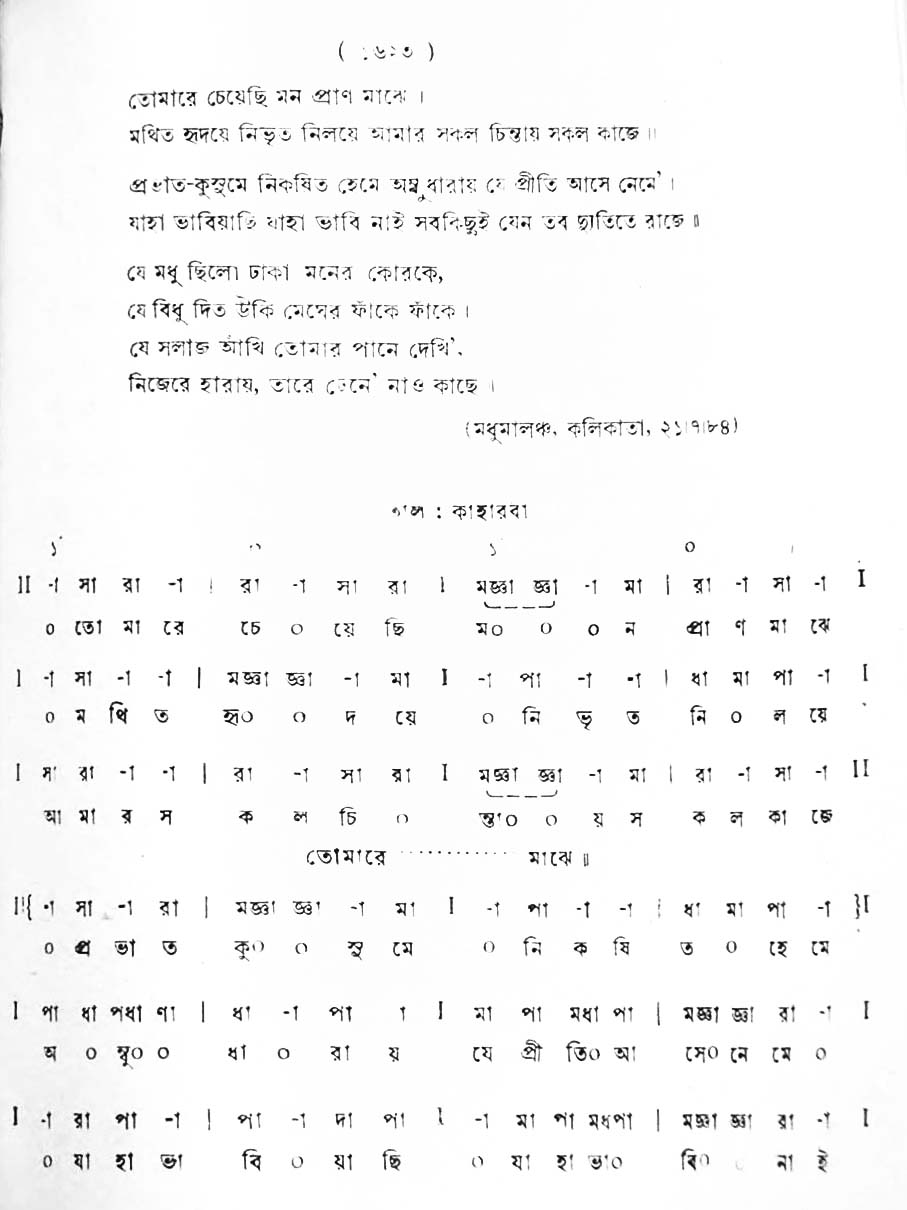 ( ১৬২৩ )
তোমারে চেয়েছি মন প্রাণ মাঝে ।
মথিত হৃদয়ে নিভৃত নিলয়ে আমার সকল চিন্তায় সকল কাজে ॥
প্রভাত-কুসুমে নিকষিত হেমে অম্বুধারায় যে প্রীতি আসে নেমে' ।
যাহা ভাবিয়াছি যাহা ভাবি নাই সবকিছুই যেন তব দ্যুতিতে রাজে ॥
যে মধু ছিলো ঢাকা মনের কোরকে,
যে বিধু দিত উঁকি মেঘের ফাঁকে ফাঁকে ।
যে সলাজ আঁখি তোমার পানে দেখি',
নিজেরে হারায়, তারে জেনে' নাও কাছে ।
(মধুমালঞ্চ, কলিকাতা, ২১।৭।৮৪)
তাল : কাহারবা
১´ ০ ১ ০
II -া সা রা -া | রা -া সা রা I মজ্ঞা জ্ঞা -া মা | রা -া সা -া I
০ তো মা রে চে ০ য়ে ছি ম০ ০ ০ ন প্রা ণ মা ঝে
I -া সা -া -া | মজ্ঞা জ্ঞা -া মা I -া পা -া -া | ধা মা পা -া I
০ ম থি ত হৃ০ ০ দ য়ে ০ নি ভৃ ত নি ০ ল য়ে
I সা রা -া -া | রা -া সা রা I মজ্ঞা জ্ঞা -া মা | রা -া সা -া II
আ মা র স ক ল চি ০ ন্তা০ ০ য় স ক ল কা জে
তোমারে ············ মাঝে ॥
II{ -া সা -া রা | মজ্ঞা জ্ঞা -া মা I -া পা -া -া | ধা মা পা -া }I
০ প্র ভা ত কু০ ০ সু মে ০ নি ক ষি ত ০ হে মে
I পা ধা পধা ণা | ধা -া পা া I মা পা মধা পা | মজ্ঞা জ্ঞা রা -া I
অ ০ ম্বু০ ০ ধা ০ রা য় যে প্রী তি০ আ সে০ নে মে ০
I -া রা পা -া | পা -া দা পা I -া মা পা মধপা | মজ্ঞা জ্ঞা রা -া I
০ যা হা ভা বি ০ য়া ছি ০ যা হা ভা০ বি০ ০ না ই